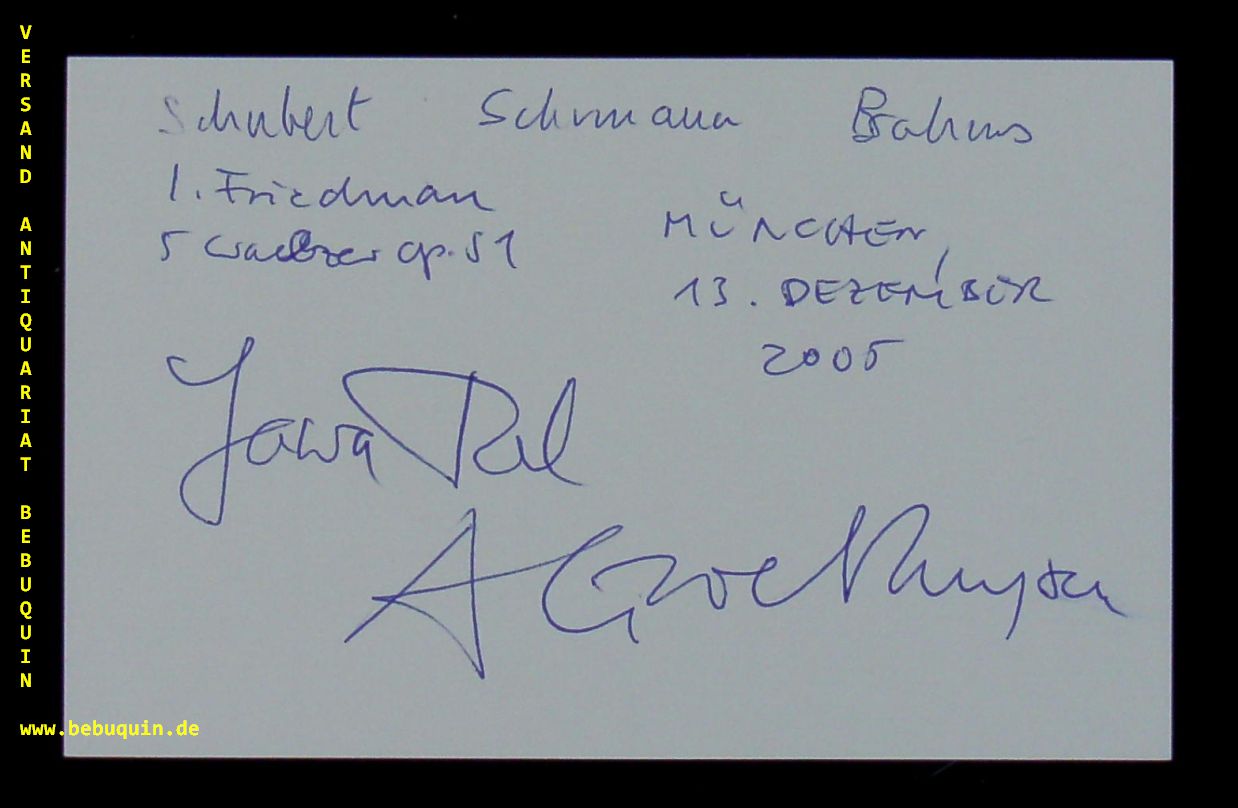 VERSAND ANTIQUARIAT BEBUQUIN
Schubert Schumann Brahms
I. Friedman
5 Walzer op. 51
MÜNCHEN,
13. DEZEMBER
2005
Yaara Tal
A Groethuysen
www.bebuquin.de